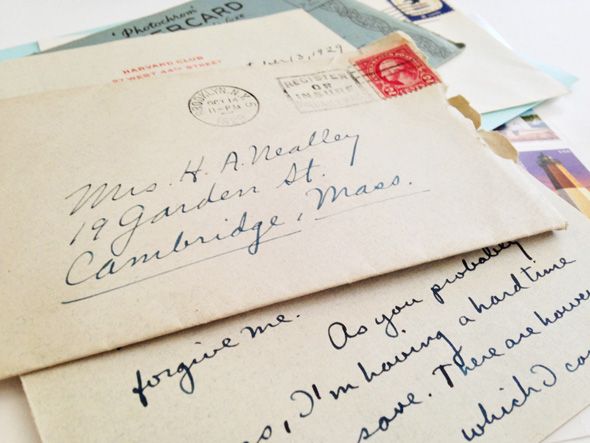 'Photochrom'
HARVARD CLUB
27 WEST 44TH STREET
13, 1929
BROOKLYN, N.Y.
OCT 14
11-PM
REGISTER
OR
INSURE
Mrs. H. A. Nealley
19 Garden St.
Cambridge, Mass.
forgive me.
As you probably
I'm having a hard time
save. There are howe
which I ca